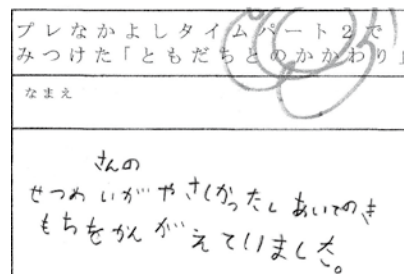 プレなかよしタイムパート2で
みつけた「ともだちとのかかわり」
なまえ
さんの
せつめいがやさしかったしあいてのき
もちをかんがえていました。